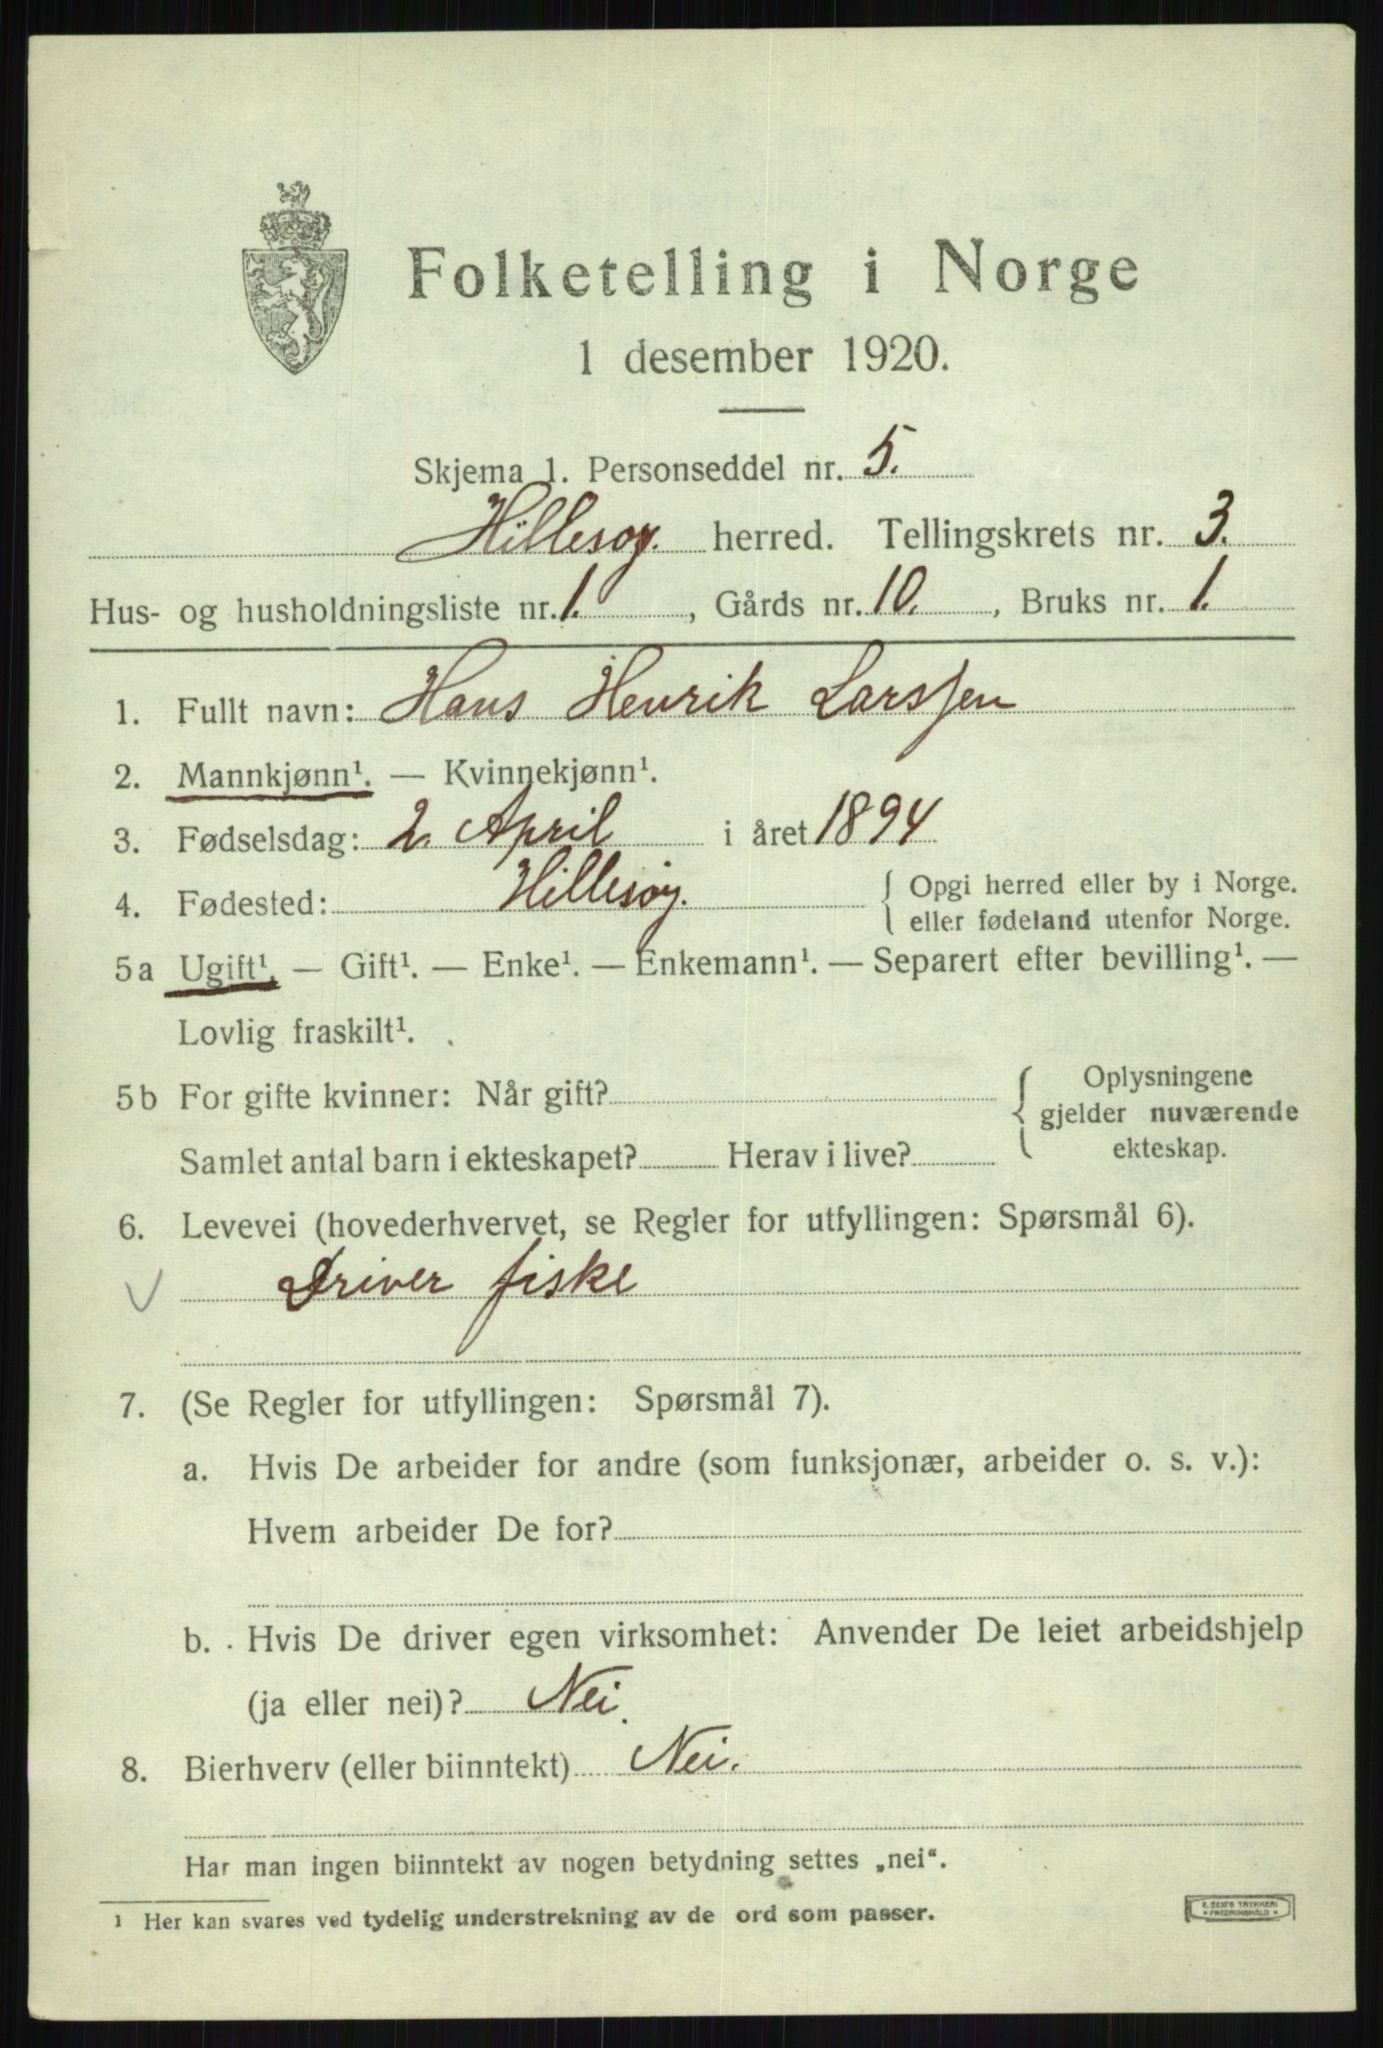 Folketelling i Norge
1 desember 1920.
Skjema 1. Personseddel nr. 5.
Hillesøy. herred. Tellingskrets nr. 3.
Hus- og husholdningsliste nr. 1. , Gårds nr. 10. , Bruks nr. 1.
1. Fullt navn: Hans Henrik Larssen
2. Mannkjønn¹. — Kvinnekjønn¹.
3. Fødselsdag: 2. April i året 1894
4. Fødested: Hillesøy. { Opgi herred eller by i Norge.
eller fødeland utenfor Norge.
5a Ugift¹. — Gift¹. — Enke¹. — Enkemann¹. — Separert efter bevilling¹. —
Lovlig fraskilt¹.
5b For gifte kvinner: Når gift? { Oplysningene
gjelder nuværende
Samlet antal barn i ekteskapet? Herav i live? ekteskap.
6. Levevei (hovederhvervet, se Regler for utfyllingen: Spørsmål 6).
V Driver fiske
7. (Se Regler for utfyllingen: Spørsmål 7).
a. Hvis De arbeider for andre (som funksjonær, arbeider o. s. v.):
Hvem arbeider De for?
b. Hvis De driver egen virksomhet: Anvender De leiet arbeidshjelp
(ja eller nei)? Nei.
8. Bierhverv (eller biinntekt) Nei.
Har man ingen biinntekt av nogen betydning settes „nei“.
1 Her kan svares ved tydelig understrekning av de ord som passer.
E. SEM'S TRYKKERI
* FREDRIKSHALD *